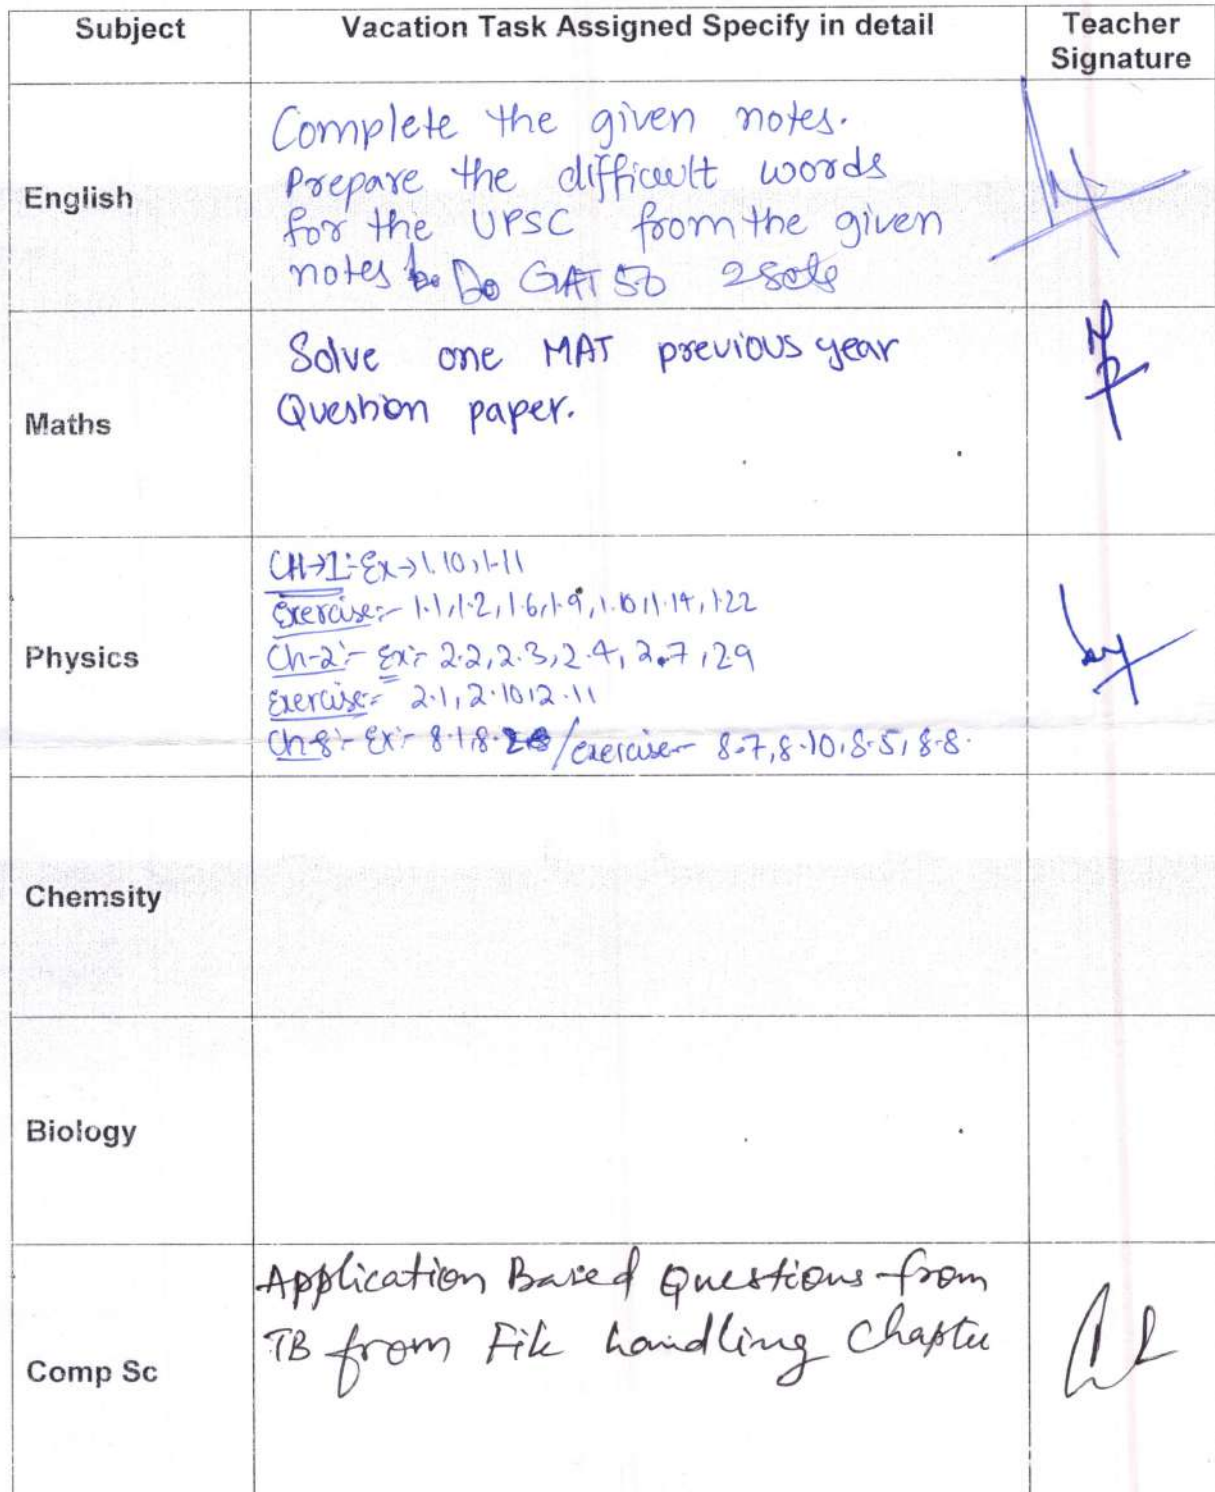 Subject Vacation Task Assigned Specify in detail Teacher Signature
English
Complete the given notes.
Prepare the difficult words
for the UPSC from the given
notes Do GAT 50 2 Sets
Maths
Solve one MAT previous year
Question paper.
Physics
CH→1:- Ex→ 1.10, 1.11
Exercise:- 1.1, 1.2, 1.6, 1.9, 1.10, 1.14, 1.22
Ch-2:- Ex:- 2.2, 2.3, 2.4, 2.7, 2.9
Exercise:- 2.1, 2.10, 2.11
Ch-8:- Ex:- 8.1, 8.2 / exercise- 8.7, 8.10, 8.5, 8.8.
Chemsity
Biology
Comp Sc
Application Based Questions from
TB from File handling Chapter